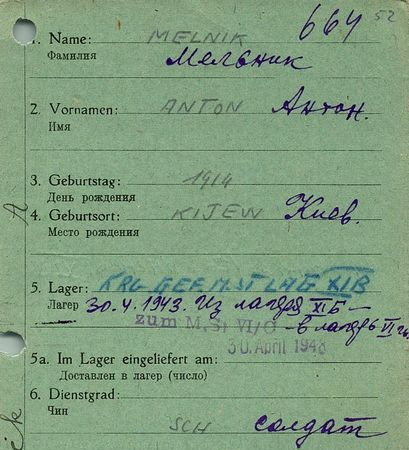 664 52
1. Name: MELNIK
Фамилия Мельник
2. Vornamen: ANTON Антон.
Имя
3. Geburtstag: 1914
День рождения
4. Geburtsort: KIJEW Киев.
Место рождения
5. Lager: KRG GEF M.ST LAG XIB
Лагер 30.4.1943. Из лагеря XIБ –
zum M.St VI/G
– в лагерь VI
30. April 1943
5a. Im Lager eingeliefert am:
Доставлен в лагер (число)
6. Dienstgrad:
Чин
SCH солдат